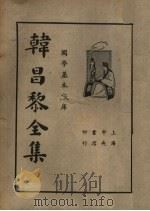 韓昌黎全集
國學基本文庫
上海
中央
書店
印行